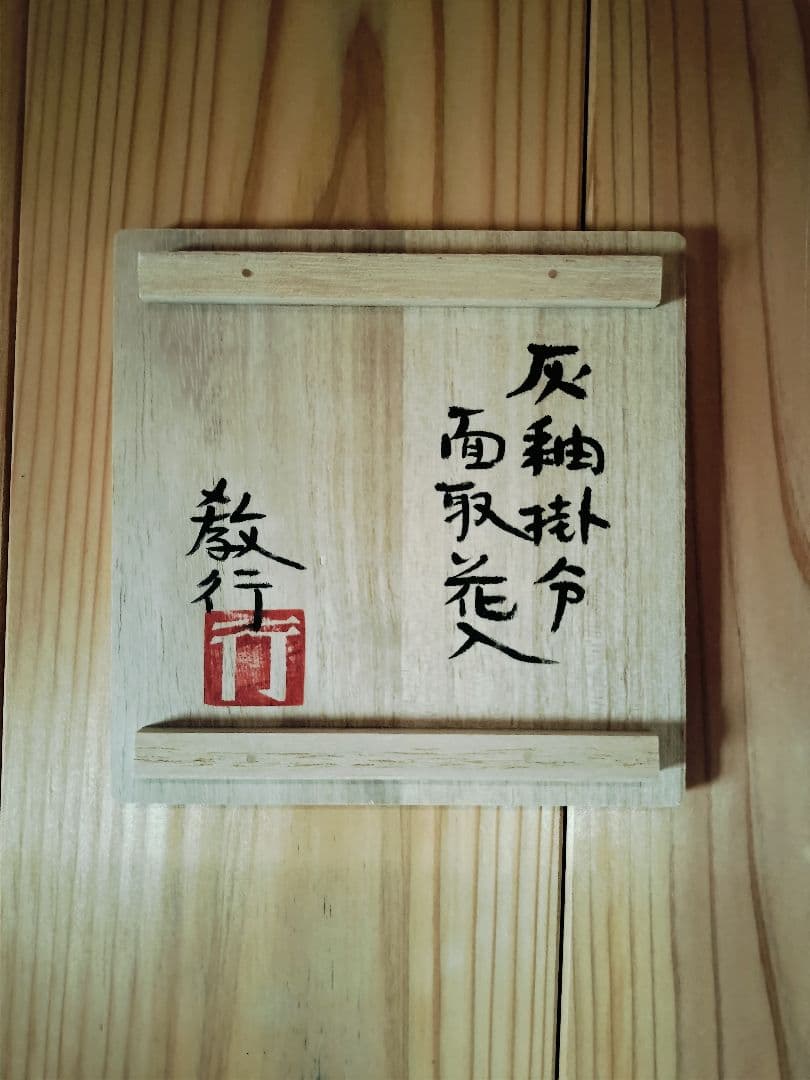 灰釉掛分
面取花入
教行
行